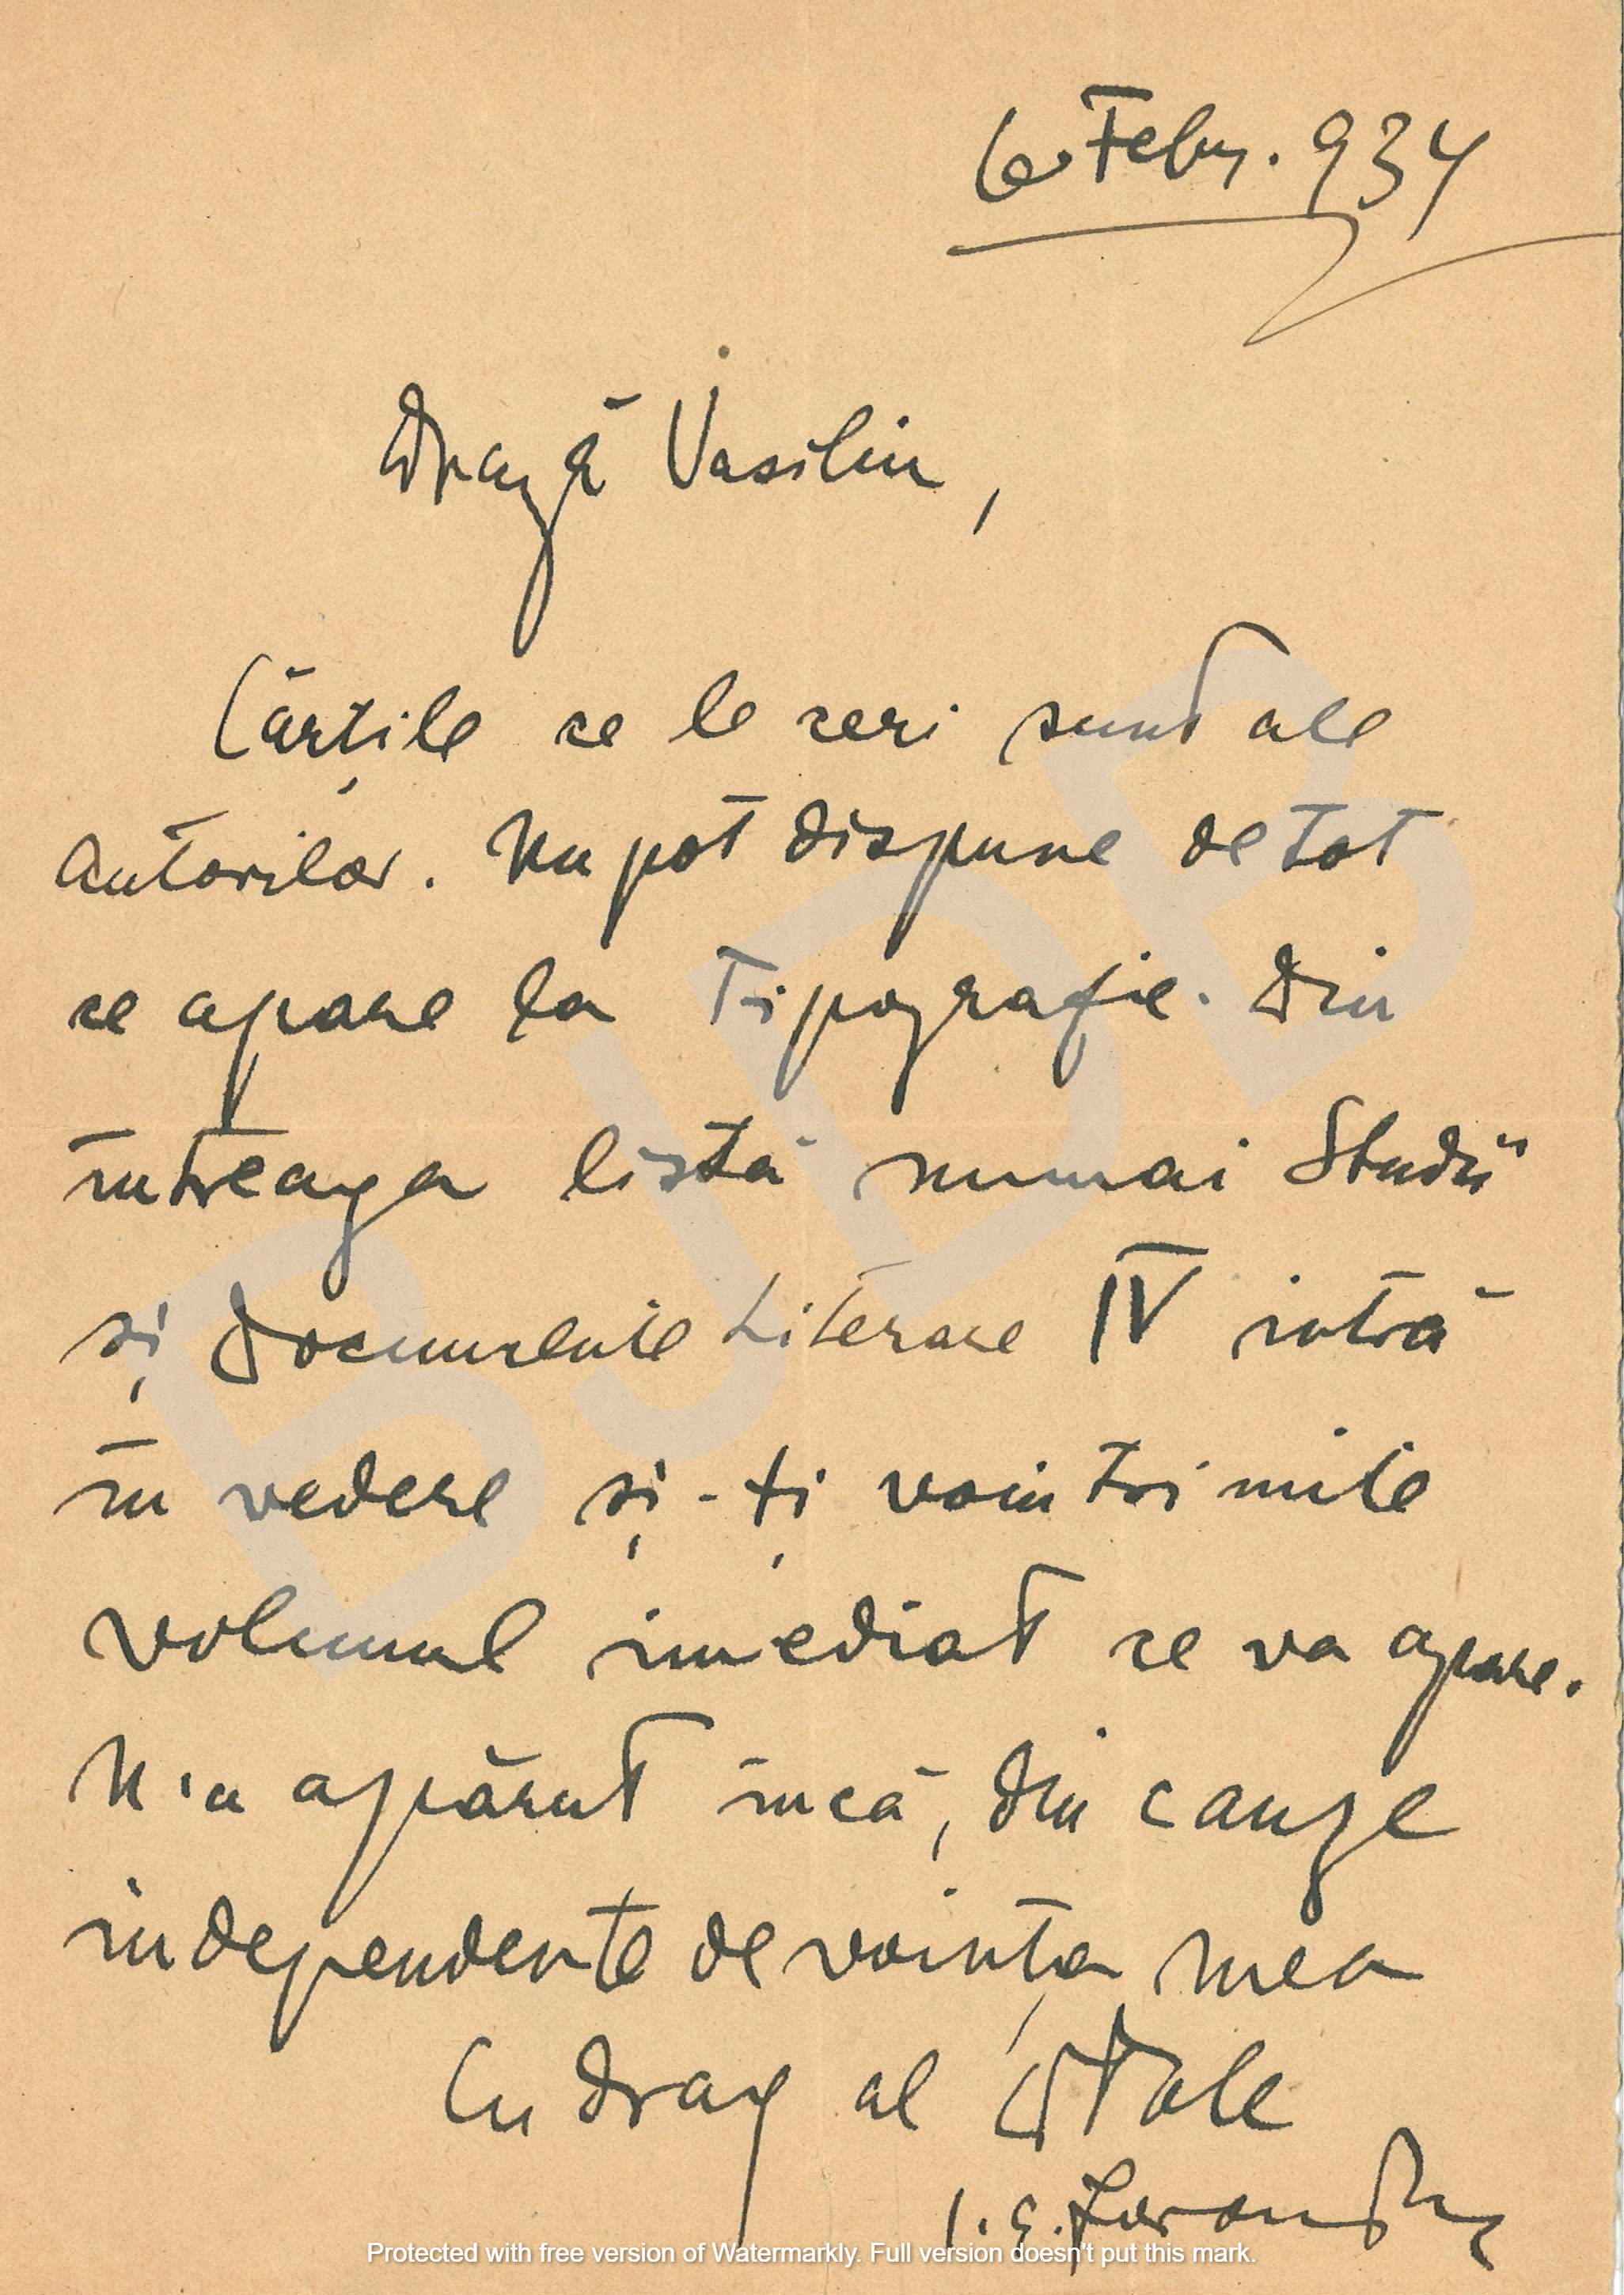 6 Febr. 934
Dragă Vasiliu,
Cărțile ce le ceri sunt ale
autorilor. Nu pot dispune de tot
ce apare la Tipografie. Din
întreaga listă numai Studii
și Documente Literare IV intră
în vedere și-ți voiu trimite
volumul imediat ce va apare.
N'a apărut încă, din cauze
independente de voința mea
Cu drag al
I. E.
BJDB
Protected with free version of Watermarkly. Full version doesn't put this mark.